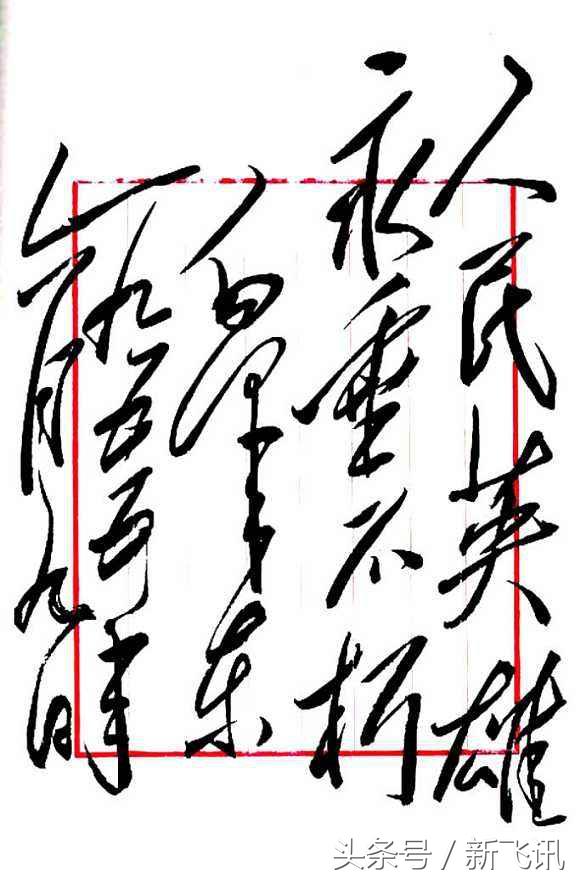 人民英雄
永垂不朽
毛泽东
一九五五年
六月九日
头条号 / 新飞讯